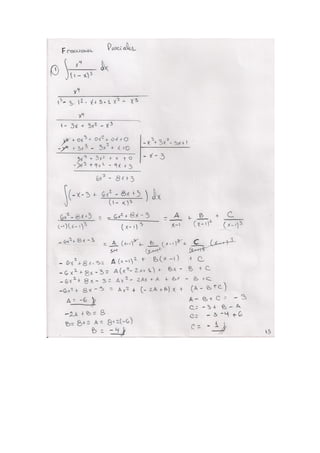 Fracciones Parciales
① ∫ x⁴/(1-x)³ dx
x⁴
1³ - 3·1²·x + 3·1 x² - x³
x⁴
1 - 3x + 3x² - x³
x⁴ + 0x³ + 0x² + 0x + 0 | -x³ + 3x² - 3x + 1
-x⁴ + 3x³ - 3x² + x + 0 | -x - 3
3x³ - 3x² + x + 0
-3x³ + 9x² - 9x + 3
6x² - 8x + 3
∫ (-x - 3 + 6x² - 8x + 3/(1-x)³) dx
6x² - 8x + 3/(-1)(x-1)³ = -6x² + 8x - 3/(x-1)³ = A/x-1 + B/(x-1)² + C/(x-1)³
-6x² + 8x - 3 = A/x-1 (x-1)³ + B/(x-1)² (x-1)³ + C/(x-1)³ (x-1)³
-6x² + 8x - 3 = A(x-1)² + B(x-1) + C
-6x² + 8x - 3 = A(x² - 2x + 1) + Bx - B + C
-6x² + 8x - 3 = Ax² - 2Ax + A + Bx - B + C
-6x² + 8x - 3 = Ax² + (-2A + B)x + (A - B + C)
A = -6 A - B + C = -3
-2A + B = 8 C = -3 + B - A
B = 8 + 2A = 8 + 2(-6) C = -3 - 4 + 6
B = -4 C = -1
13